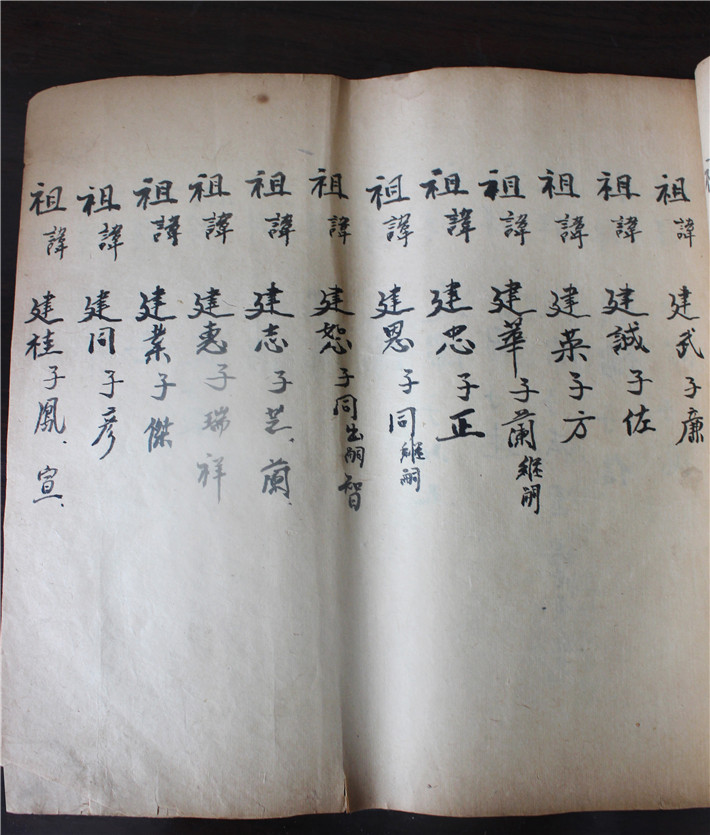 祖諱建武子廉
祖諱建誠子佐
祖諱建英子方
祖諱建華子蘭繼嗣
祖諱建忠子正
祖諱建恩子同繼嗣
祖諱建恕子同出嗣智
祖諱建志子芝、蘭、
祖諱建惠子瑞祥
祖諱建業子傑
祖諱建同子彦
祖諱建桂子鳳、宣、